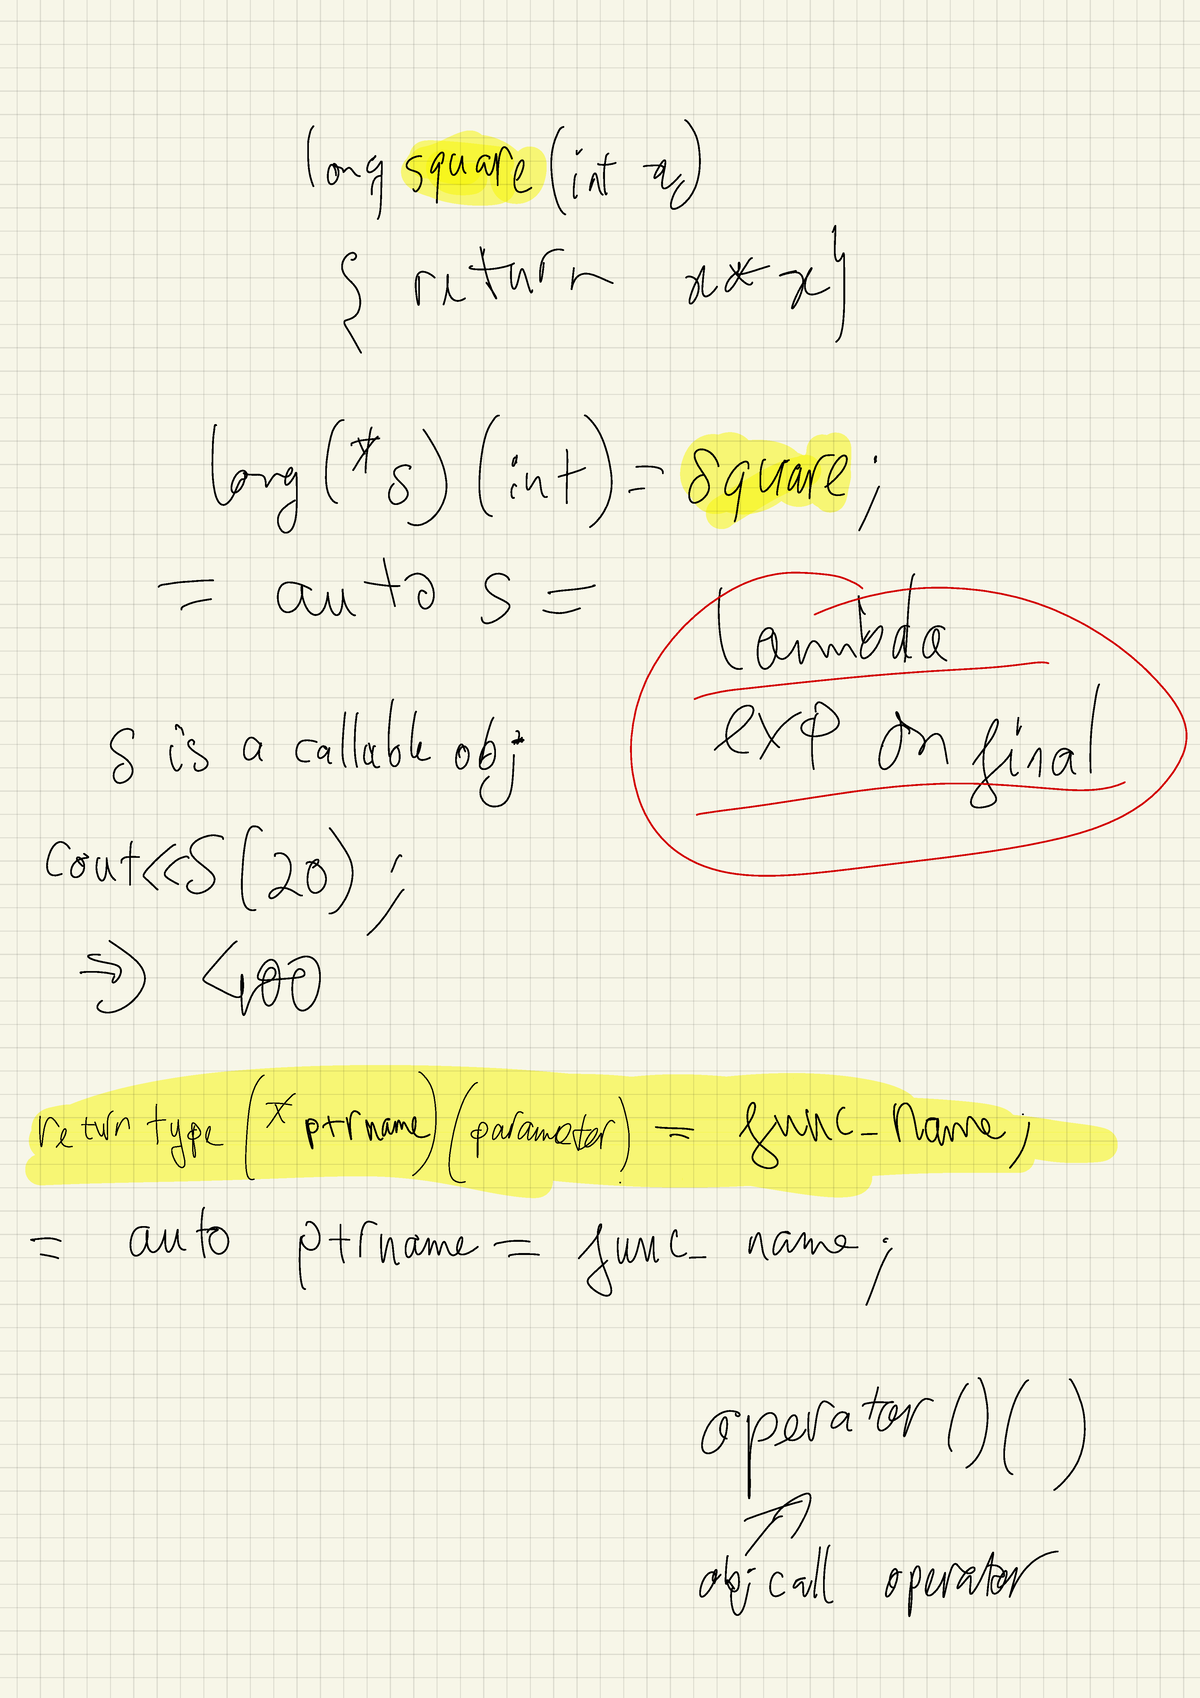 long square (int x)
{ return x * x }
long (*s) (int) = square;
= auto s =
lambda
exp on final
s is a callable obj
cout<<s(20);
⇒ 400
return type (* ptrname) (parameter) = func_name;
= auto ptrname = func_name;
operator () ( )
obj call operator